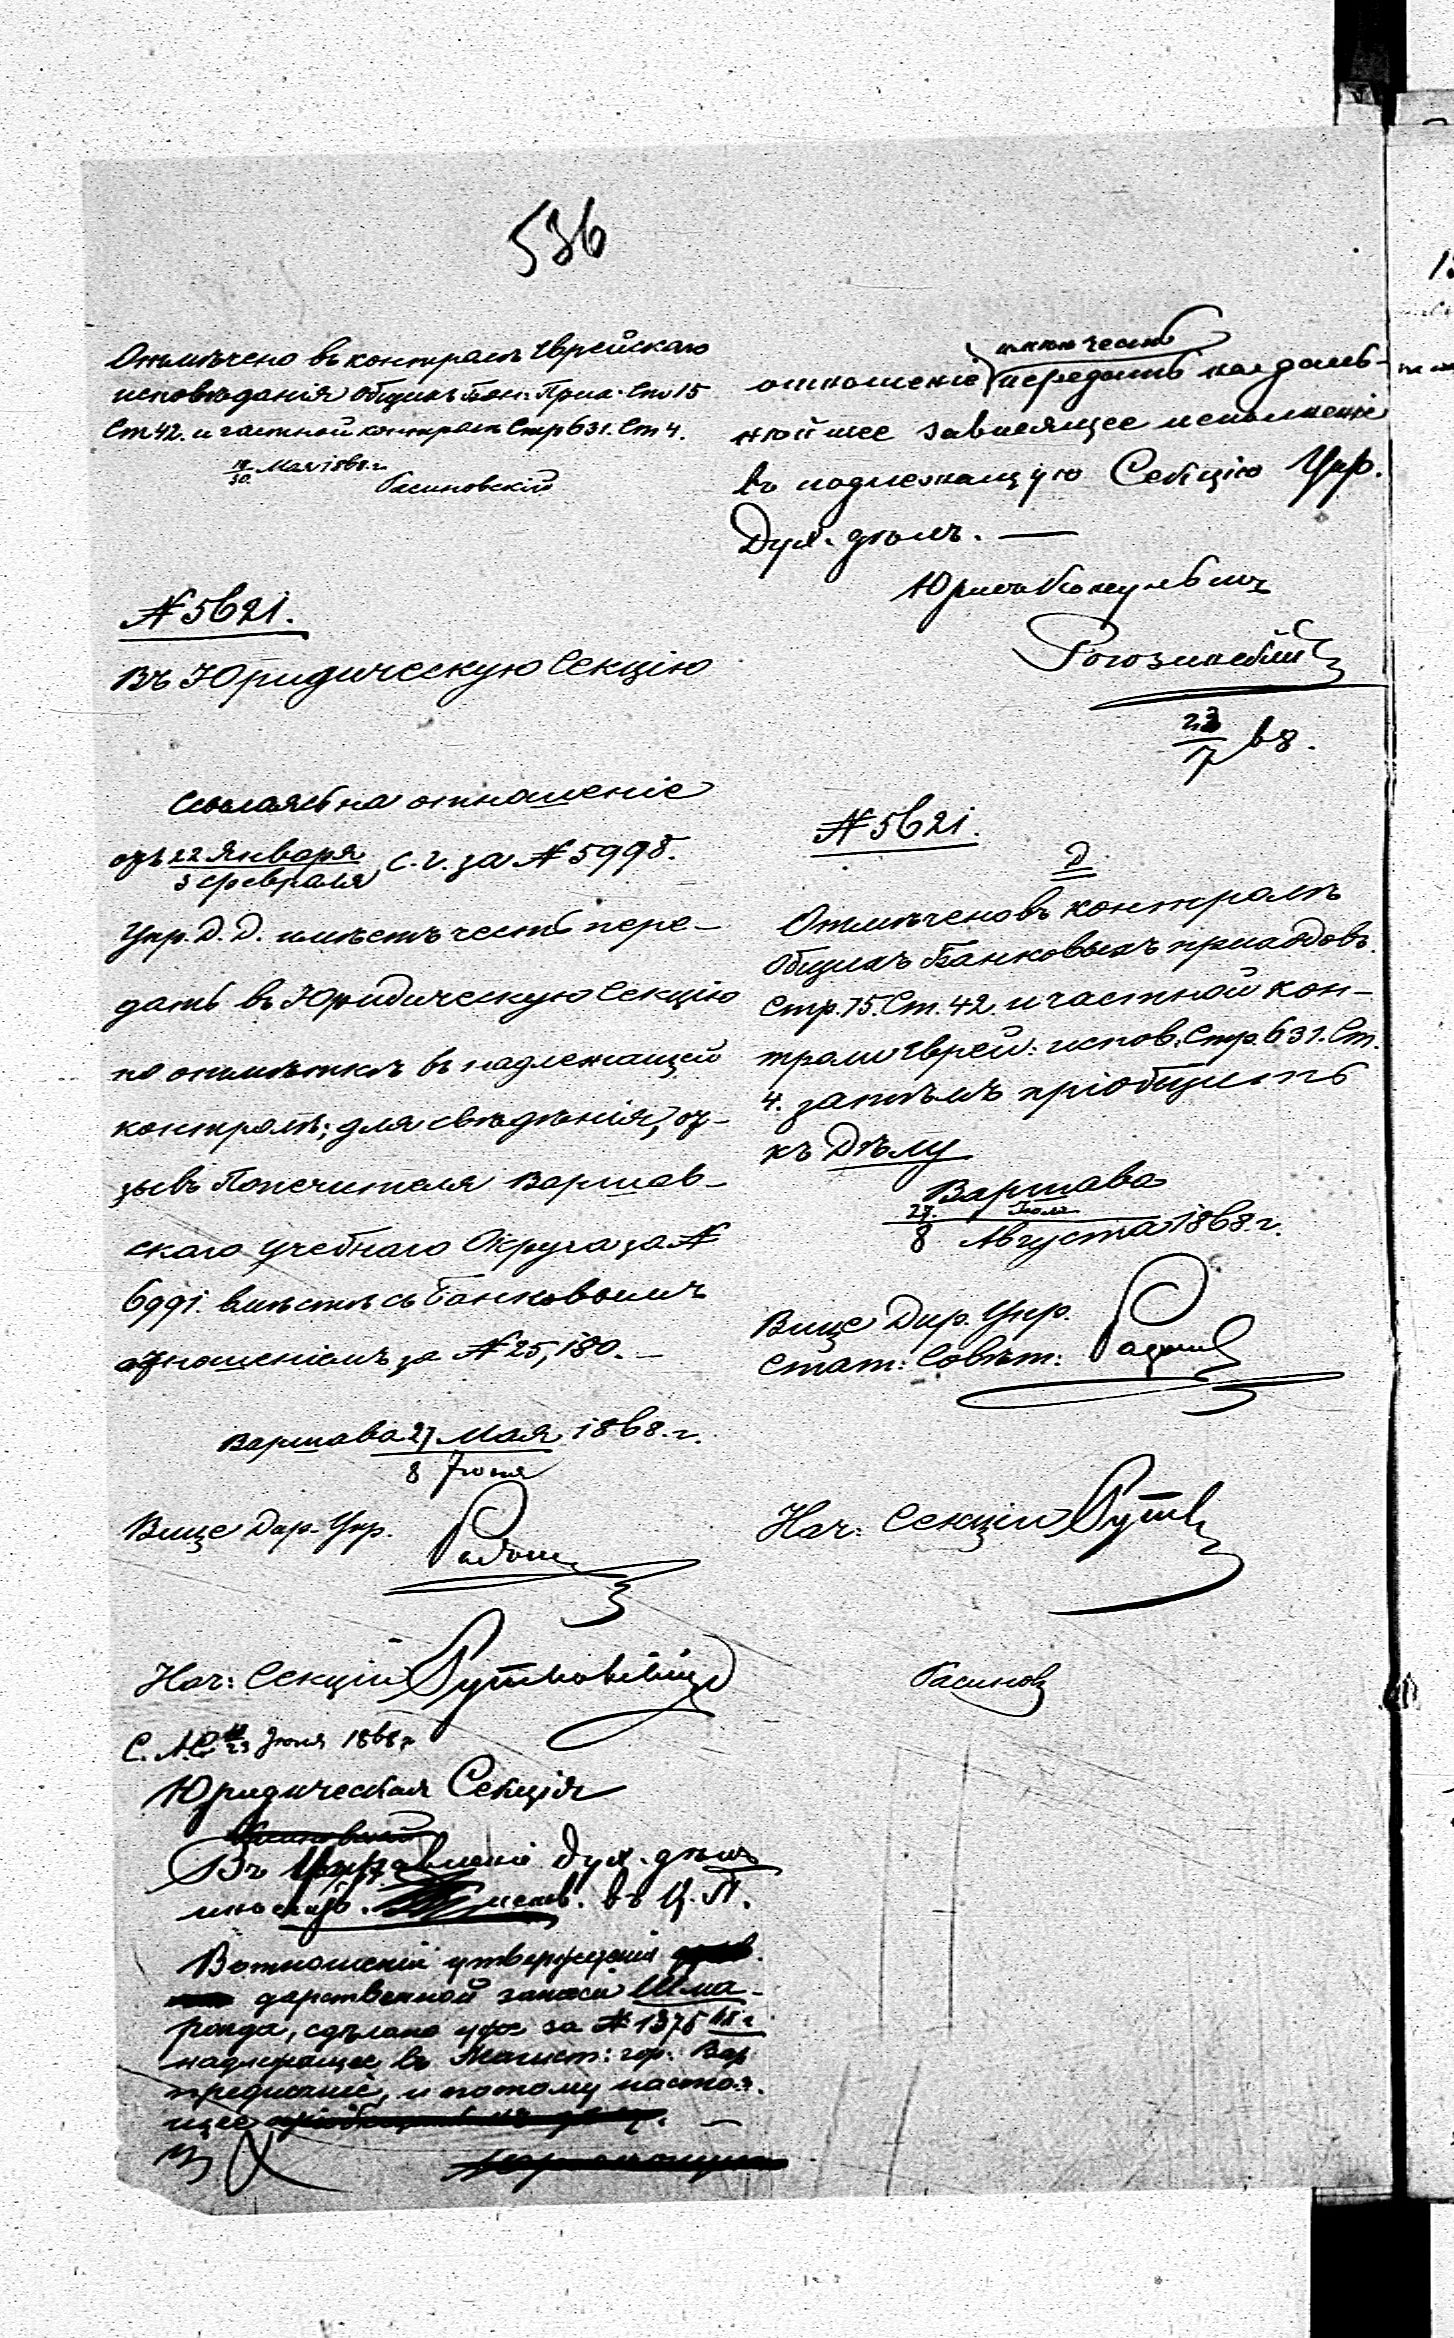 536
Отмѣчено въ контролѣ Еврейскаго
исповѣданія общихъ Бан: Прих. Стр 15
Ст 42. и частной контролѣ Стр 631. Ст 4.
18/30 Мая 1868 г.
Расиновскій
№ 5621.
Въ Юридическую Секцію
Ссылаясь на отношеніе
отъ 22 Января / 3 Февраля с. г. за № 5998.
Упр. Д. Д. имѣетъ честь пере-
дать въ Юридическую Секцію
по отмѣткѣ въ надлежащей
контролѣ; для свѣдѣнія, от-
зывъ Попечителя Варшав-
скаго Учебнаго Округа за №
6991. вмѣстѣ съ Банковымъ
отношеніемъ за № 25,180. —
Варшава 27 Мая / 8 Іюня 1868. г.
Вице Дир. Упр.
Нач: Секціи Рутковскій
Іюня 1868 г.
Юридическая Секція
Въ Управленіе Дух. дѣлъ
иностр. испов. въ Ц. П.
Въ отношеніи утвержденія
дарственной записи Шма-
ронда, сдѣлано уже за № 1375 68 г.
надлежащее въ Магист: гор. Вар
предписаніе, и потому настоя-
щее
отношеніе имѣю честь передать на даль-
нѣйшее зависящее исполненіе
въ надлежащую Секцію Упр.
Дух. дѣлъ. —
Юрисконсультъ
23/7 68.
№ 5621.
Д
Отмѣчено въ контролѣ
Общихъ Банковыхъ приходовъ.
Стр. 15. Ст. 42. и частной кон-
троли Еврей: испов. Стр. 631. Ст.
4. затѣмъ пріобщить
къ Дѣлу
Варшава
27 Іюля / 8 Августа 1868 г.
Вице Дир. Упр.
Стат: Совѣт:
Нач: Секціи